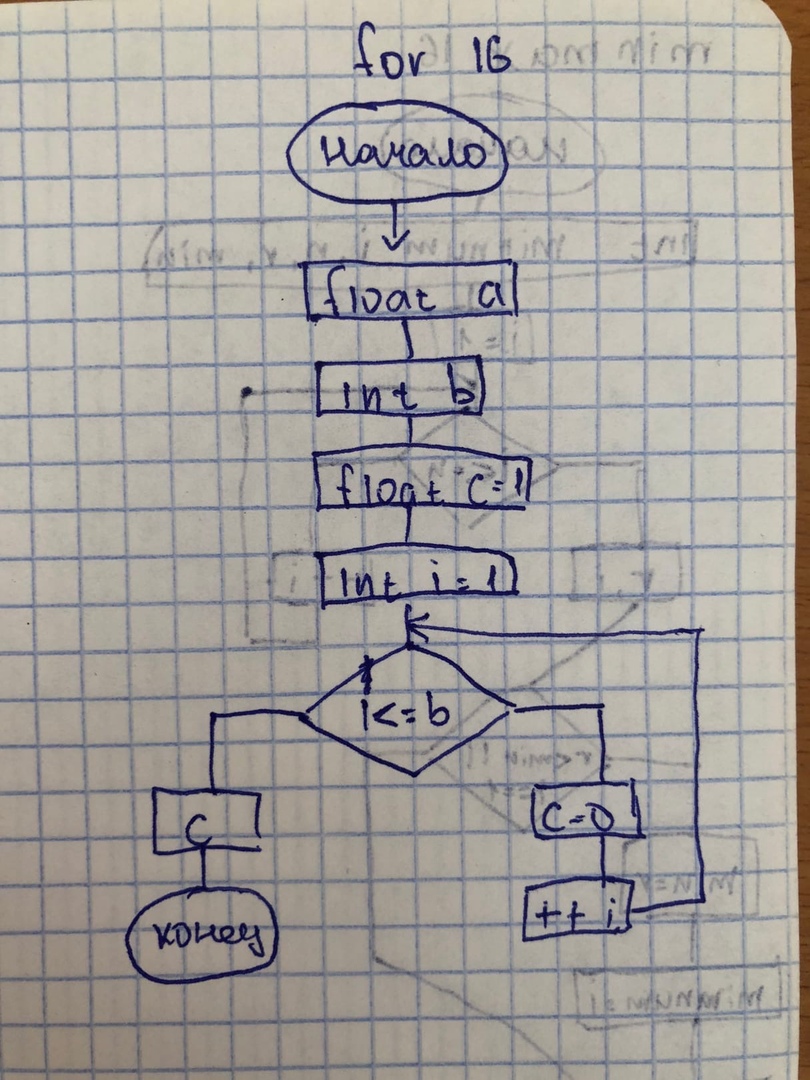 for 16
начало
float a
int b
float c=1
int i=1
i<=b
c
c=0
++ i
конец